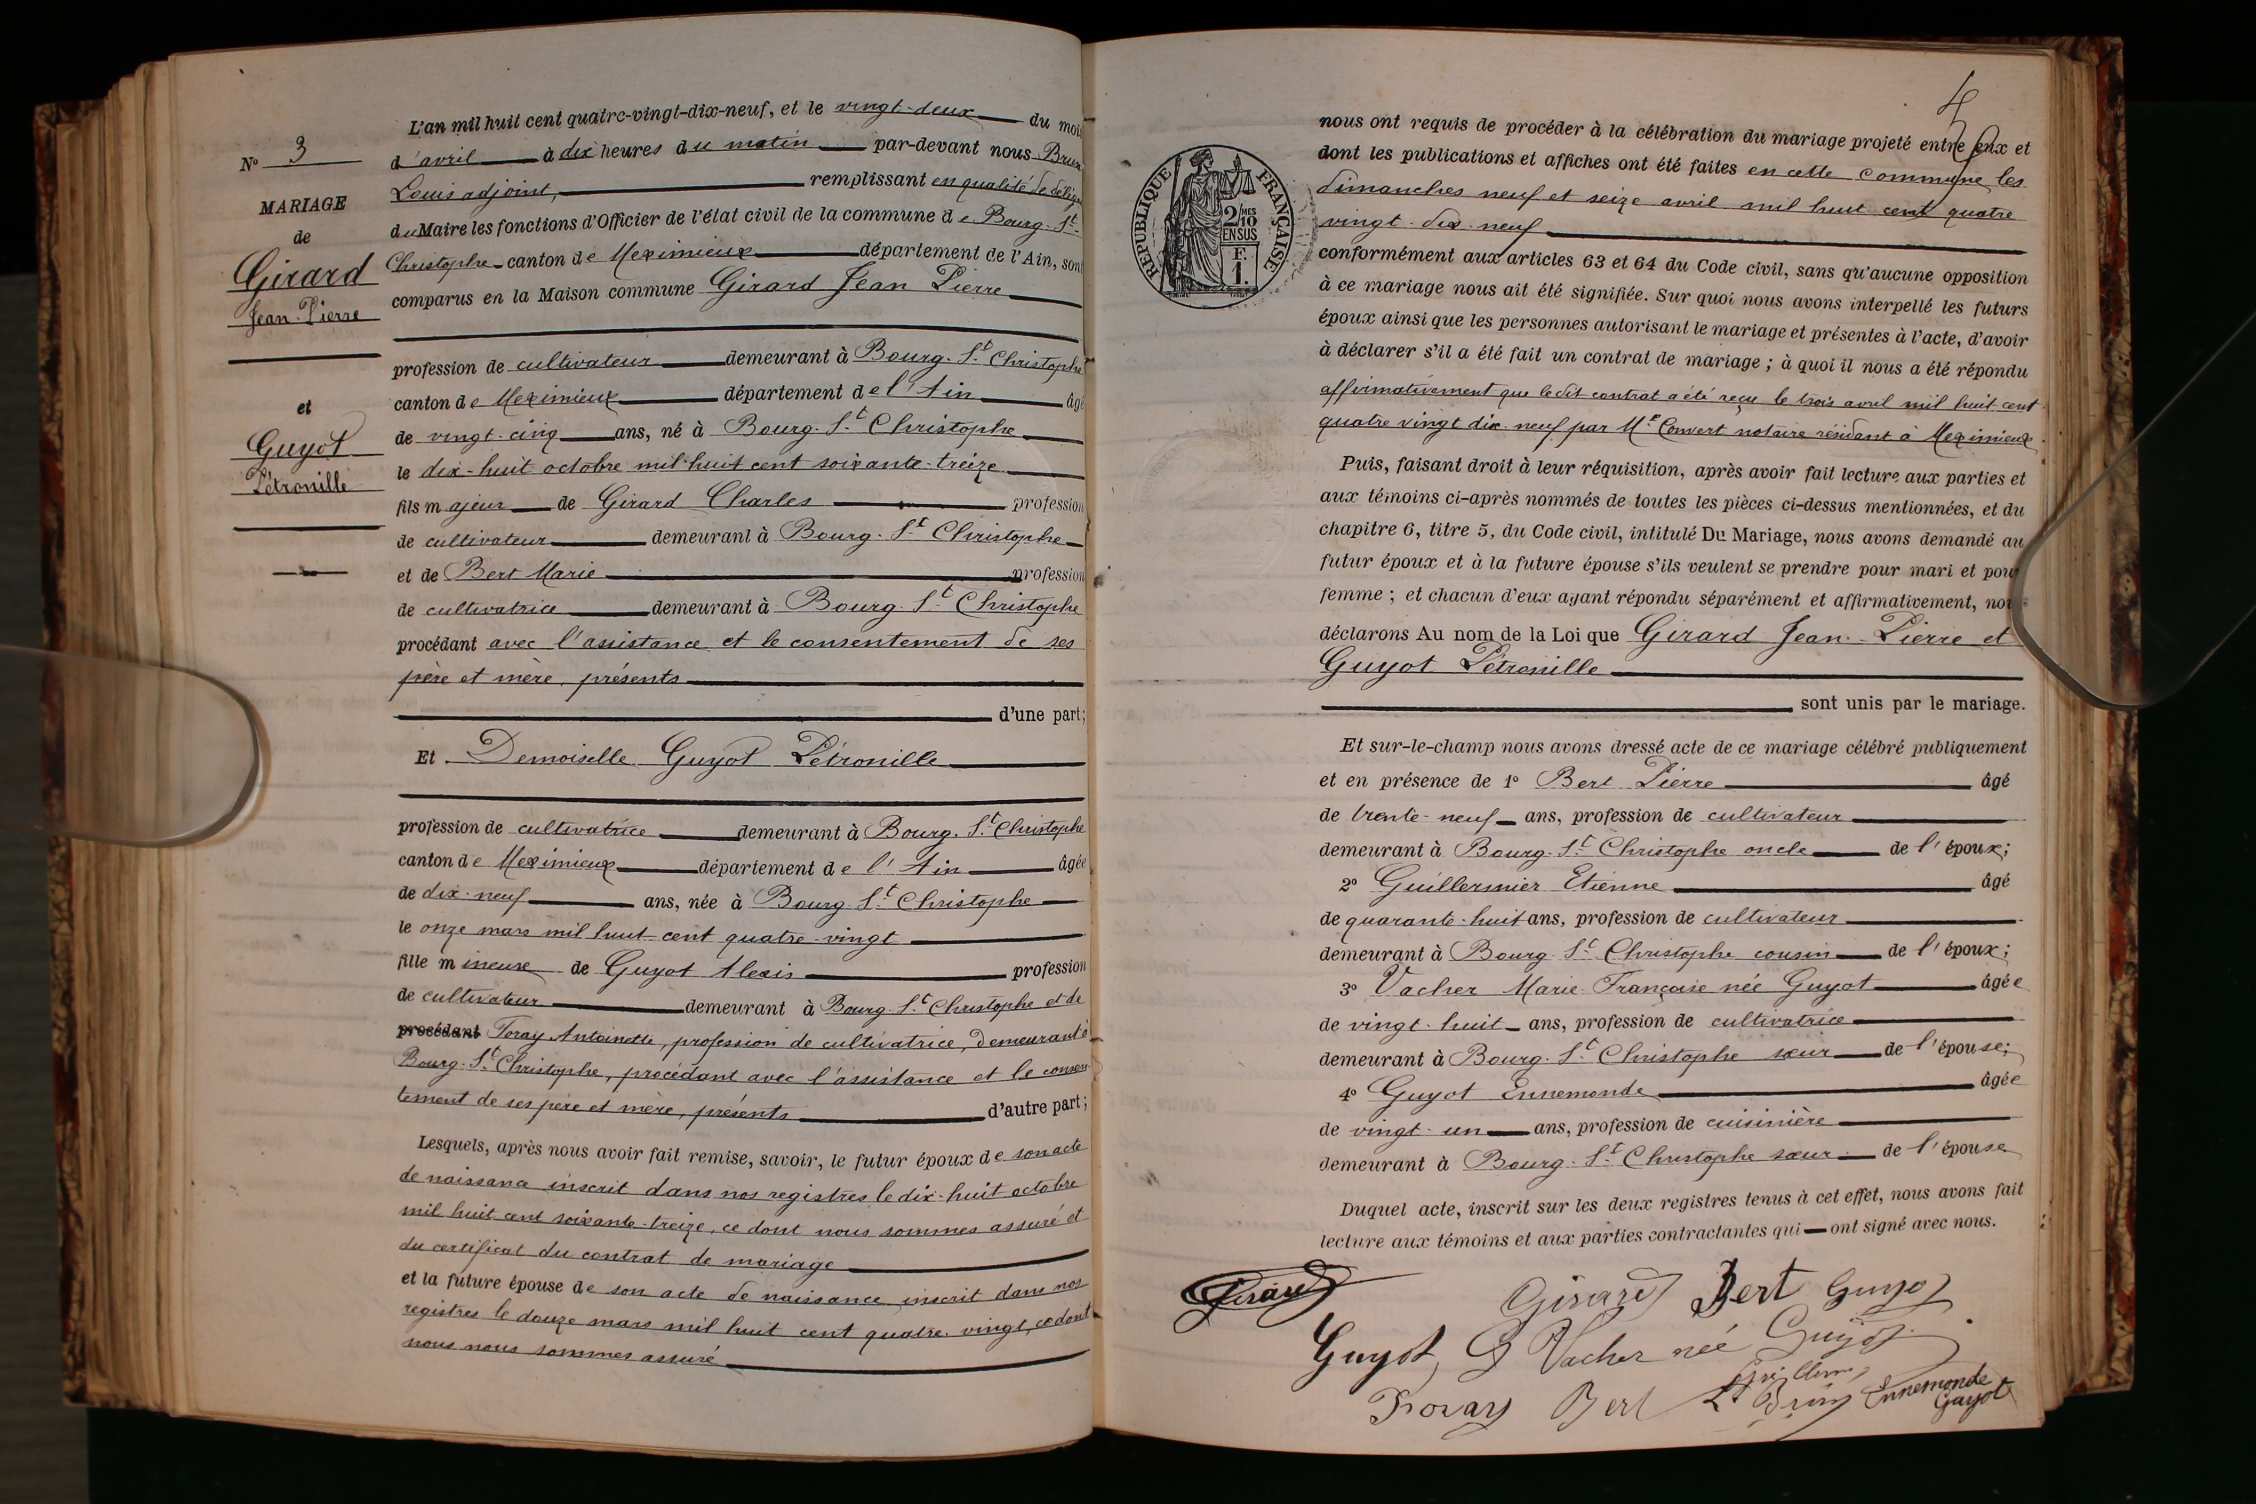 N° 3
MARIAGE
de
Girard
Jean-Pierre
et
Guyot
Pétronille
L'an mil huit cent quatre-vingt-dix-neuf, et le vingt-deux du mois
d'avril à dix heures du matin par-devant nous Brun
Louis adjoint, remplissant en qualité de délégué
du Maire les fonctions d'Officier de l'état civil de la commune de Bourg-St-
Christophe canton de Meximieux département de l'Ain, sont
comparus en la Maison commune Girard Jean Pierre
profession de cultivateur demeurant à Bourg-St Christophe
canton de Meximieux département de l'Ain âgé
de vingt-cinq ans, né à Bourg-St Christophe
le dix-huit octobre mil-huit cent soixante-treize
fils majeur de Girard Charles profession
de cultivateur demeurant à Bourg-St Christophe
et de Bert Marie profession
de cultivatrice demeurant à Bourg-St Christophe
procédant avec l'assistance et le consentement de ses
père et mère, présents
d'une part;
Et Demoiselle Guyot Pétronille
profession de cultivatrice demeurant à Bourg-St Christophe
canton de Meximieux département de l'Ain âgée
de dix-neuf ans, née à Bourg-St Christophe
le onze mars mil huit cent quatre-vingt
fille mineure de Guyot Alexis profession
de cultivateur demeurant à Bourg-St Christophe et de
procédant Antoinette, profession de cultivatrice, demeurant à
Bourg-St Christophe, procédant avec l'assistance et le consen-
tement de ses père et mère, présents d'autre part;
Lesquels, après nous avoir fait remise, savoir, le futur époux de son acte
de naissance inscrit dans nos registres le dix-huit octobre
mil huit cent soixante-treize, ce dont nous sommes assuré et
du certificat du contrat de mariage
et la future épouse de son acte de naissance inscrit dans nos
registres le douze mars mil huit cent quatre-vingt, ce dont
nous nous sommes assuré
4
RÉPUBLIQUE FRANÇAISE
2/10 MES
EN SUS
F.
1.
nous ont requis de procéder à la célébration du mariage projeté entre eux et
dont les publications et affiches ont été faites en cette commune les
dimanches neuf et seize avril mil huit cent quatre
vingt-dix-neuf
conformément aux articles 63 et 64 du Code civil, sans qu'aucune opposition
à ce mariage nous ait été signifiée. Sur quoi nous avons interpellé les futurs
époux ainsi que les personnes autorisant le mariage et présentes à l'acte, d'avoir
à déclarer s'il a été fait un contrat de mariage ; à quoi il nous a été répondu
affirmativement que le dit contrat a été reçu le trois avril mil huit cent
quatre vingt dix-neuf par Me Convert notaire résidant à Meximieux
Puis, faisant droit à leur réquisition, après avoir fait lecture aux parties et
aux témoins ci-après nommés de toutes les pièces ci-dessus mentionnées, et du
chapitre 6, titre 5, du Code civil, intitulé Du Mariage, nous avons demandé au
futur époux et à la future épouse s'ils veulent se prendre pour mari et pour
femme ; et chacun d'eux ayant répondu séparément et affirmativement, nous
déclarons Au nom de la Loi que Girard Jean-Pierre et
Guyot Pétronille
sont unis par le mariage.
Et sur-le-champ nous avons dressé acte de ce mariage célébré publiquement
et en présence de 1° Bert Pierre âgé
de trente-neuf ans, profession de cultivateur
demeurant à Bourg-St Christophe oncle de l'époux;
2° Guillermier Etienne âgé
de quarante-huit ans, profession de cultivateur
demeurant à Bourg St Christophe cousin de l'époux;
3° Vacher Marie-Françoise née Guyot âgée
de vingt-huit ans, profession de cultivatrice
demeurant à Bourg-St Christophe sœur de l'épouse;
4° Guyot Ennemonde âgée
de vingt-un ans, profession de cuisinière
demeurant à Bourg-St Christophe sœur de l'épouse
Duquel acte, inscrit sur les deux registres tenus à cet effet, nous avons fait
lecture aux témoins et aux parties contractantes qui ont signé avec nous.
Girard Girard Bert Guyot
Guyot Vacher née Guyot
Bert Ls Brun Ennemonde
Guyot